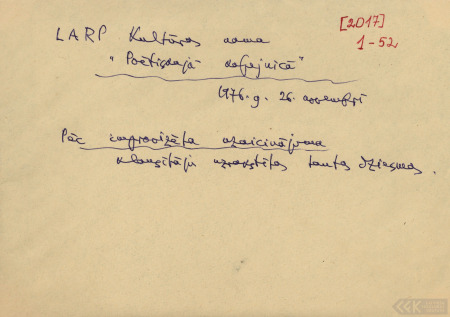 [2017]
1-52
LARP Kultūras nama
"Poētiskajā kafejnīcā"
1976.g. 26. novembrī
Pēc improvizēta uzaicinājuma
klausītāju uzrakstītas tautas dziesmas.